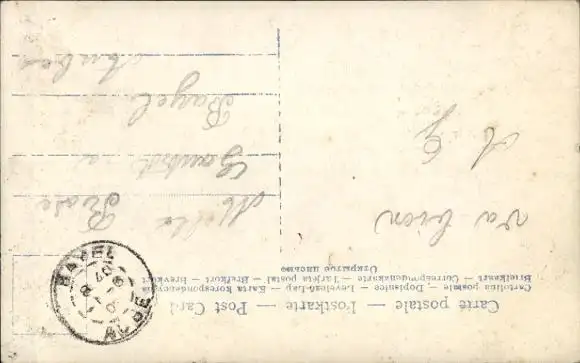 Carte postale — Postkarte — Post Card
Cartolina postale — Dopisnice — Levelező-Lap — Karta korespondencyjna
Briefkaart — Correspondenzkarte — Tarjeta postal — Brefkort — Brevkort
Открытое письмо
va bien
Melle
Rose
Bayel
Aube
BAYEL
AUBE